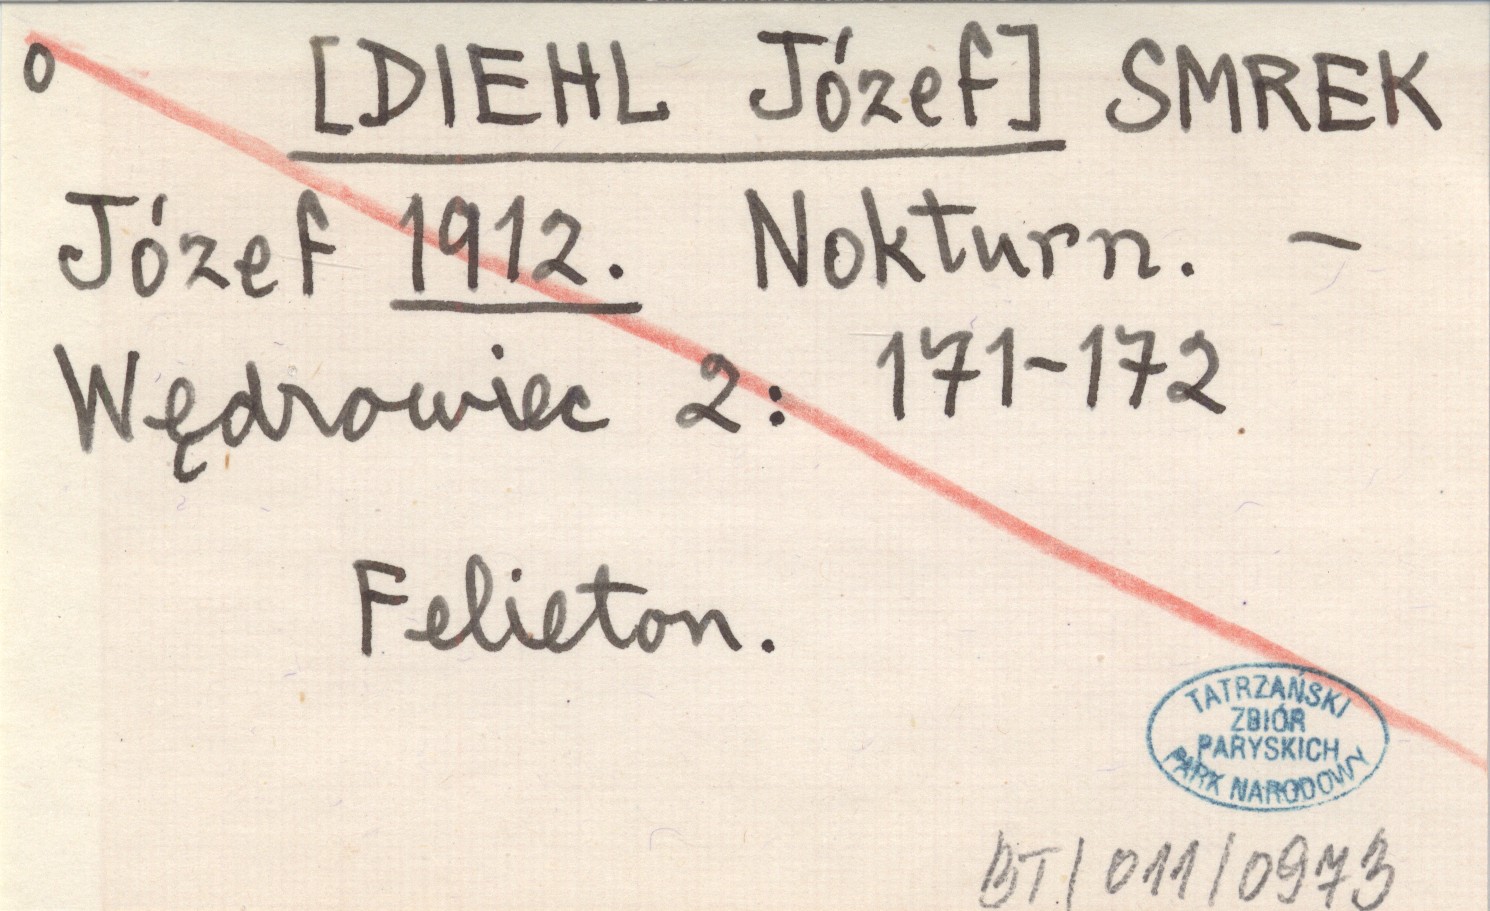 o [DIEHL Józef] SMREK
Józef 1912. Nokturn. –
Wędrowiec 2: 171-172
Felieton.
TATRZAŃSKI
ZBIÓR
PARYSKICH
PARK NARODOWY
BT/011/0973